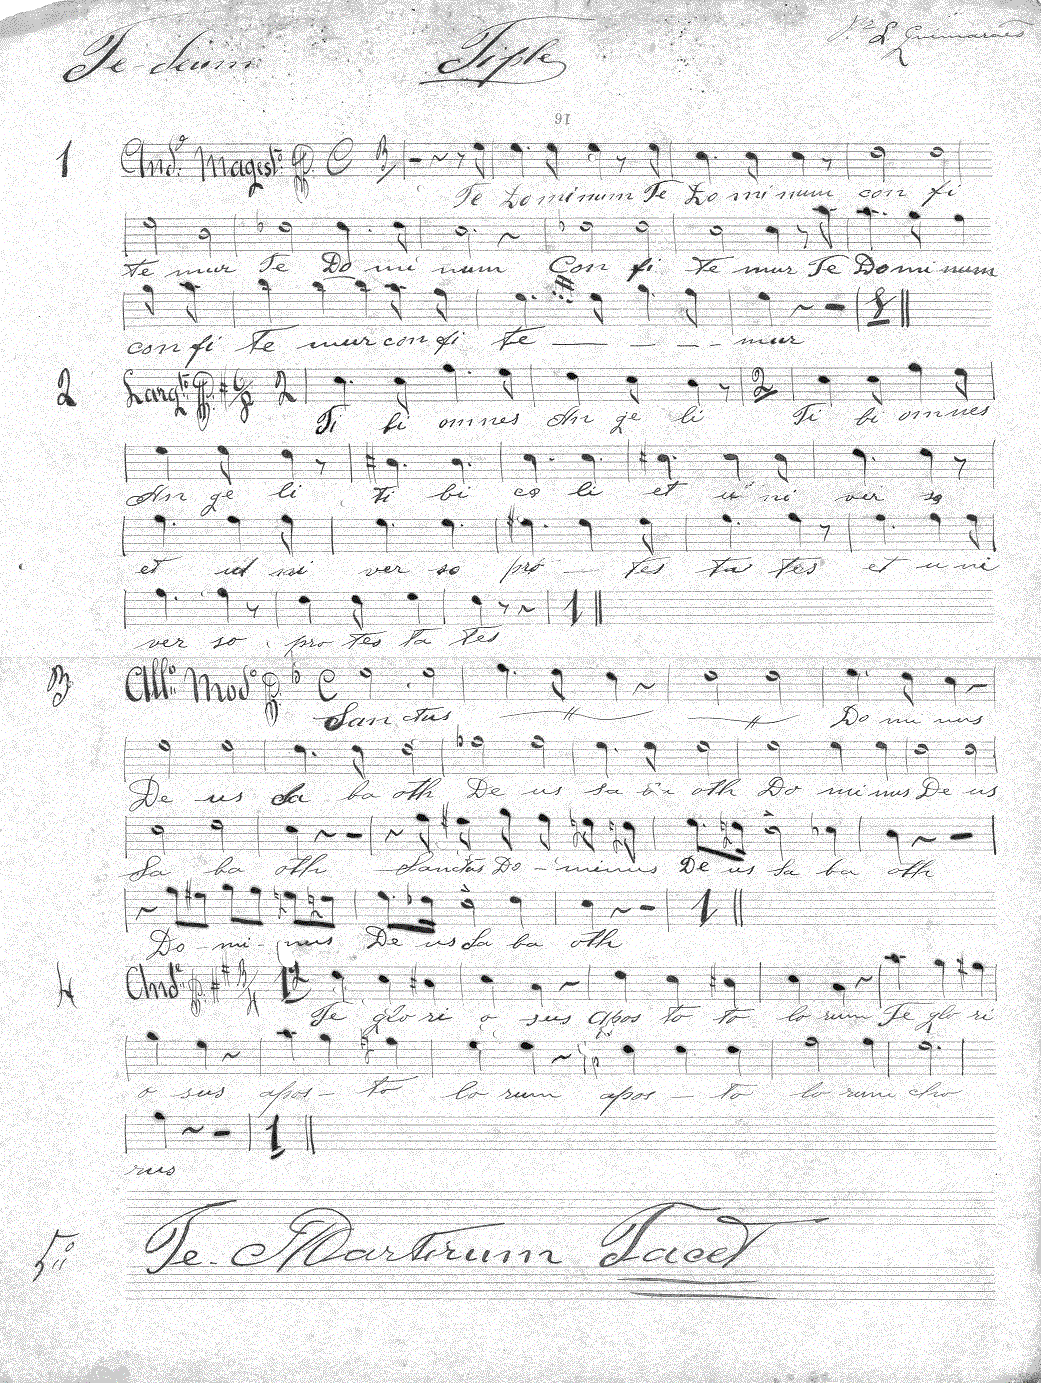 Te-deum Tiple L Guimaraes
16
1 And.e Magest.o C 3
Te Do mi num Te Do mi num con fi
te mur Te Do mi num Con fi te mur Te Do mi num
con fi te mur con fi te — — — — mur
8
2 Larg.to 2
Ti bi omnes An ge li Ti bi omnes
2
An ge li ti bi cœ li et u ni ver so
et ud ni ver so pro — tes ta tes et u ni
ver so pro tes ta tes
1
3 All.o Mod.o C
Sanctus Do mi nus
De us Sa ba oth De us sa ba oth Do mi nus De us
Sa ba oth Sanctus Do - minus De us sa ba oth
Do - mi - nus De us Sa ba oth
1
4 And.e 3/4 12
Te glo ri o sus apos to to lo rum Te glo ri
o sus apos - to lo rum apos - to lo rum cho
rus
1
5.o Te - Martirum Tacet